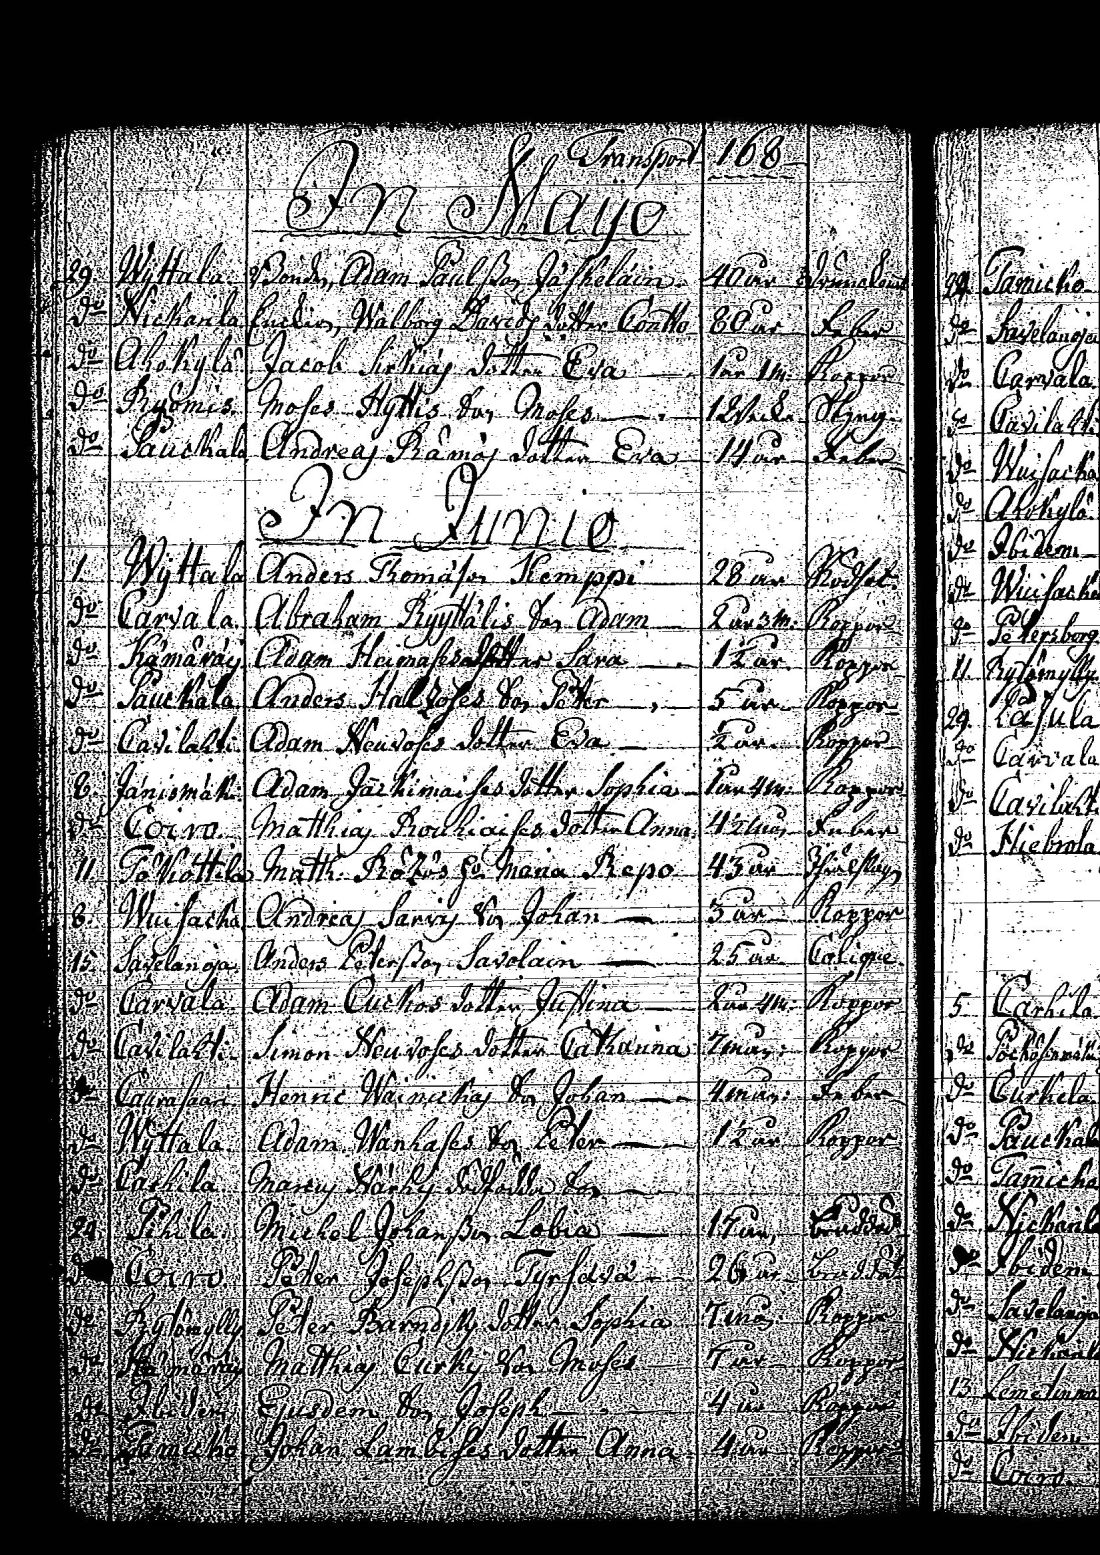 Transport 168
In Mayo
29. Wyttala. Bonden Adam Paulsson Jäskeläin. 40 år
do Nickarila Enckan Walborg Davids dotter Contto 80 år Feber
do Ahokylä. Jacob Sirkias dotter Eva 1 år 1 m. Koppor
do Ryömis. Moses Hyttis son Moses 12 Veck.
do Pauckala Andreas Rämös dotter Eva 14 år Feber
In Junio
1. Wyttala Anders Thomasson Kemppi 28 år Rödsot.
do Carvala. Abraham Ryyttälis son Adam 2 år 3 m. Koppor
do Kämäräis Adam Heimases dotter Sara 1½ år. Koppor
do Pauckala Anders Halkoses son Peter 5 år. Koppor
do Cavilahti Adam Neuvoses dotter Eva ½ år. Koppor
8. Jänismäki. Adam Jäskimaises dotter Sophia 1 år 4 m. Koppor
do Coiro. Matthias Roukiaises dotter Anna. Feber
11 Math. Maria Repo 43 år
8. Wuisacka Andreas Sarvis son Johan 3 år Koppor
15. Savelanoja. Anders Petersson Savolain 25 år Colique.
do Carvala. Adam Cuckos dotter Justina 2 år 4 m. Koppor
do Cavilahti. Simon Neuvoses dotter Catharina Koppor
Caurasaari Henric Wainickas son Johan Feber
do Wyttala Adam Wanhases son Peter 1½ år Koppor
do Carhila. Marcus Närhis dödfödde son
24. Pihla. Michel Johansson Lobia 17 år,
Coiro. Peter Josephsson 26 år
do Rysömylly Peter dotter Sophia Koppor
do Kämäräis Matthias Curkis son Moses 7 år Koppor
do Ibidem Ejusdem son Joseph 4 år Koppor
do Tamicko Johan Lambises dotter Anna 4 år Koppor
24. Tamicko
do Savelanoja
do Carvala.
do Cavilahti
do Wuisacka
do Ahokylä.
do Ibidem
do Wuisacka
do Petersborg
11. Rysömylly
29. Pajula
do Carvala
do Cavilahti
do Hiebrola
5. Carhila.
do
do Curkela.
do Pauckala
do Tamicka
do Nickarila
Ibidem
do Savelanoja
do Nickarila
13.
do Ibidem
do Coiro.